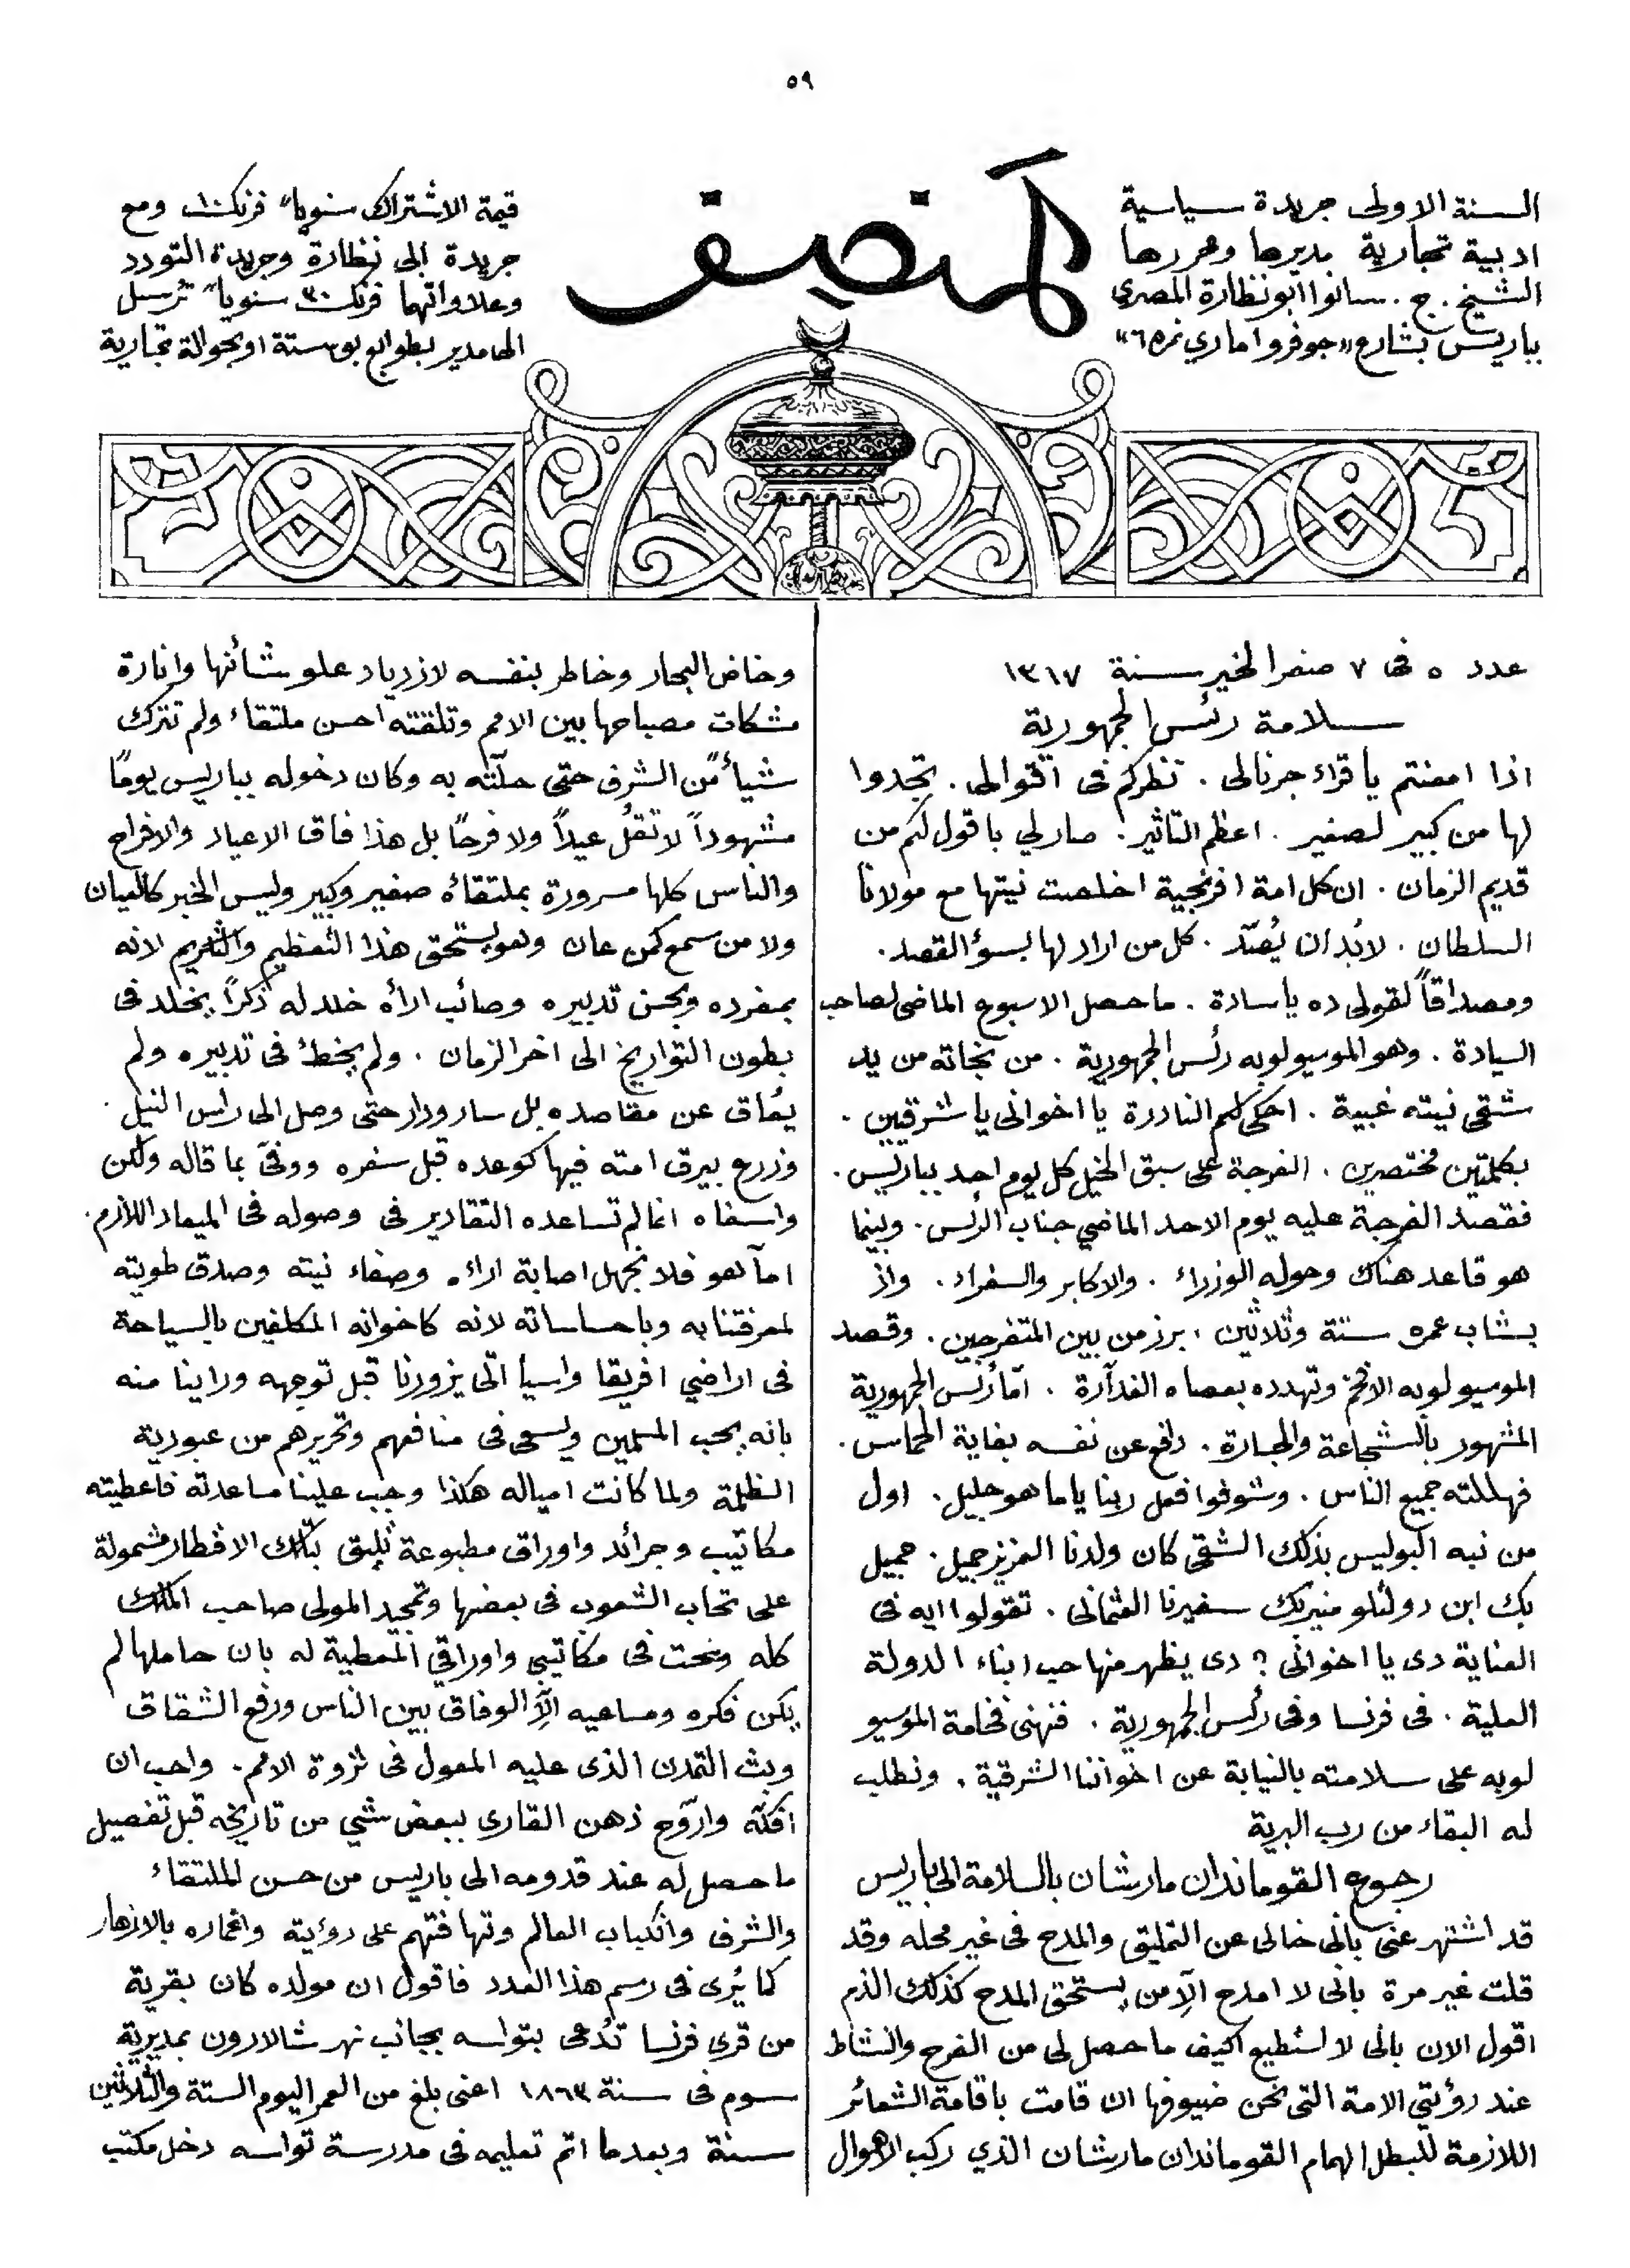 ٥٩
السنة الاولى جريدة سياسية
ادبية تجارية مديرها ومحررها
الشيخ . ج . سانوا ابو نظارة المصري
بباريس بشارع «جوفروا ماري نمر٦٥»
المنصف
قيمة الاشتراك سنوياً فرنك ١٠ ومع
جريدة ابى نظارة وجريدة التودد
وعلاواتهما فرنك ٣٠ سنوياً ترسل
الى المدير بطوابع بوستة او بحوالة تجارية
عدد ٥ فى ٧ صفر الخير سنة ١٣١٧
سلامة رئس الجمهورية
اذا امعنتم يا قراء جرنالى . نظركم فى اقوالى . تجدوا
لها من كبير لصغير . اعظم التاثير . صار لي باقول لكم من
قديم الزمان . ان كل امة افرنجية اخلصت نيتها مع مولانا
السلطان . لا بُد ان يُصَدّ . كل من اراد لها بسؤ القصد .
ومصداقاً لقولى ده يا سادة . ما حصل الاسبوع الماضى لصاحب
السيادة . وهو الموسيو لوبه رئس الجمهورية . من نجاته من يد
شقى نيته غبية . احكى لكم النادرة يا اخوانى يا شرقيين .
بكلمتين مختصرين . الفرجة على سبق الخيل كل يوم احد بباريس .
فقصد الفرجة عليه يوم الاحد الماضي جناب الرئس . وبينما
هو قاعد هناك وحوله الوزراء . والاكابر والسفراء . واذ
بشاب عمره ستة وثلاثين . برز من بين المتفرجين . وقصد
الموسيو لوبه الافخم وتهدده بعصاه الغدآرة . امّا رئس الجمهورية
المشهور بالشجاعة والجسارة . دافع عن نفسه بغاية الحماس .
فهللته جميع الناس . وشوفوا فعل ربنا ياما هو جليل . اول
من نبه البوليس بذلك الشقى كان ولدنا العزيز جميل . جميل
بك ابن دولتلو منير بك سفيرنا العثمانى . تقولوا ايه فى
العناية دى يا اخوانى ؟ دى يظهر منها حب ابناء الدولة
العلية . فى فرنسا وفى رئس الجمهورية . فنهنى فخامة الموسيو
لوبه على سلامته بالنيابة عن اخواننا الشرقية . ونطلب
له البقاء من رب البرية
رجوع القوماندان مارشان بالسلامة الى باريس
قد اشتهر عنى بانى خالى عن التمليق والمدح فى غير محله وقد
قلت غير مرة بانى لا امدح الّا من يستحق المدح كذلك الذم
اقول الان بانى لا استطيع اكيف ما حصل لى من الفرح والنشاط
عند رؤيتي الامة التى نحن ضيوفها ان قامت باقامة الشعائر
اللازمة للبطل الهمام القوماندان مارشان الذي ركب الاهوال
وخاض البحار وخاطر بنفسه لازدياد علو شأنها وانارة
مشكات مصباحها بين الامم وتلقته احسن ملتقاء ولم تترك
شيأً من الشرف حتى حلّته به وكان دخوله بباريس يومًا
مشهوداً لا تقُل عيداً ولا فرحًا بل هذا فاق الاعياد والافراح
والناس كلها مسرورة بملتقاه صغير وكبير وليس الخبر كالعيان
ولا من سمع كمن عان وهو يستحق هذا التعظيم والتكريم لانه
بمفرده وبحسن تدبيره وصائب ارأه خلد له ذكراً يخلد فى
بطون التواريخ الى اخر الزمان . ولم يخطئ فى تدبيره ولم
يُعاق عن مقاصده بل سار ودار حتى وصل الى راس النيل .
وزرع بيرق امته فيها كوعده قبل سفره ووفّى بما قاله ولكن
واسفاه انما لم تساعده التقادير فى وصوله فى الميعاد اللازم .
امآ هو فلا نجهل اصابة ارائه وصفاء نيته وصدق طويته
لمعرفتنا به وباحساساته لانه كاخوانه المكلفين بالسياحة
فى اراضي افريقا واسيا اتى يزورنا قبل توجهه وراينا منه
بانه يحب المسلمين ويسعى فى منافعهم وتحريرهم من عبودية
الظلمة ولما كانت امياله هكذا وجب علينا مساعدته فاعطيته
مكاتيب وجرائد واوراق مطبوعة تليق بتلك الاقطار مشمولة
على تحاب الشعوب فى بعضها وتمجيد المولى صاحب الملك
كله وضحت فى مكاتيبى واوراقي المعطية له بان حاملها لم
يكن فكره ومساعيه الّا الوفاق بين الناس ورفع الشقاق
وبث التمدن الذى عليه المعول فى ثروة الامم . واحب ان
افكّه واروّح ذهن القارى ببعض شئي من تاريخه قبل تفصيل
ما حصل له عند قدومه الى باريس من حسن الملتقاء
والشرف وانكباب العالم وتهافتهم على رؤيته واغماره بالازهار
كما يُرى فى رسم هذا العدد فاقول ان مولده كان بقرية
من قرى فرنسا تدُعى بتواسه بجانب نهر شالارون بمديرية
سوم فى سنة ١٨٦٣ اعنى بلغ من العمر اليوم الستة والثلاثين
سنة وبعدما اتم تعليمه فى مدرسة تواسه دخل مكتب